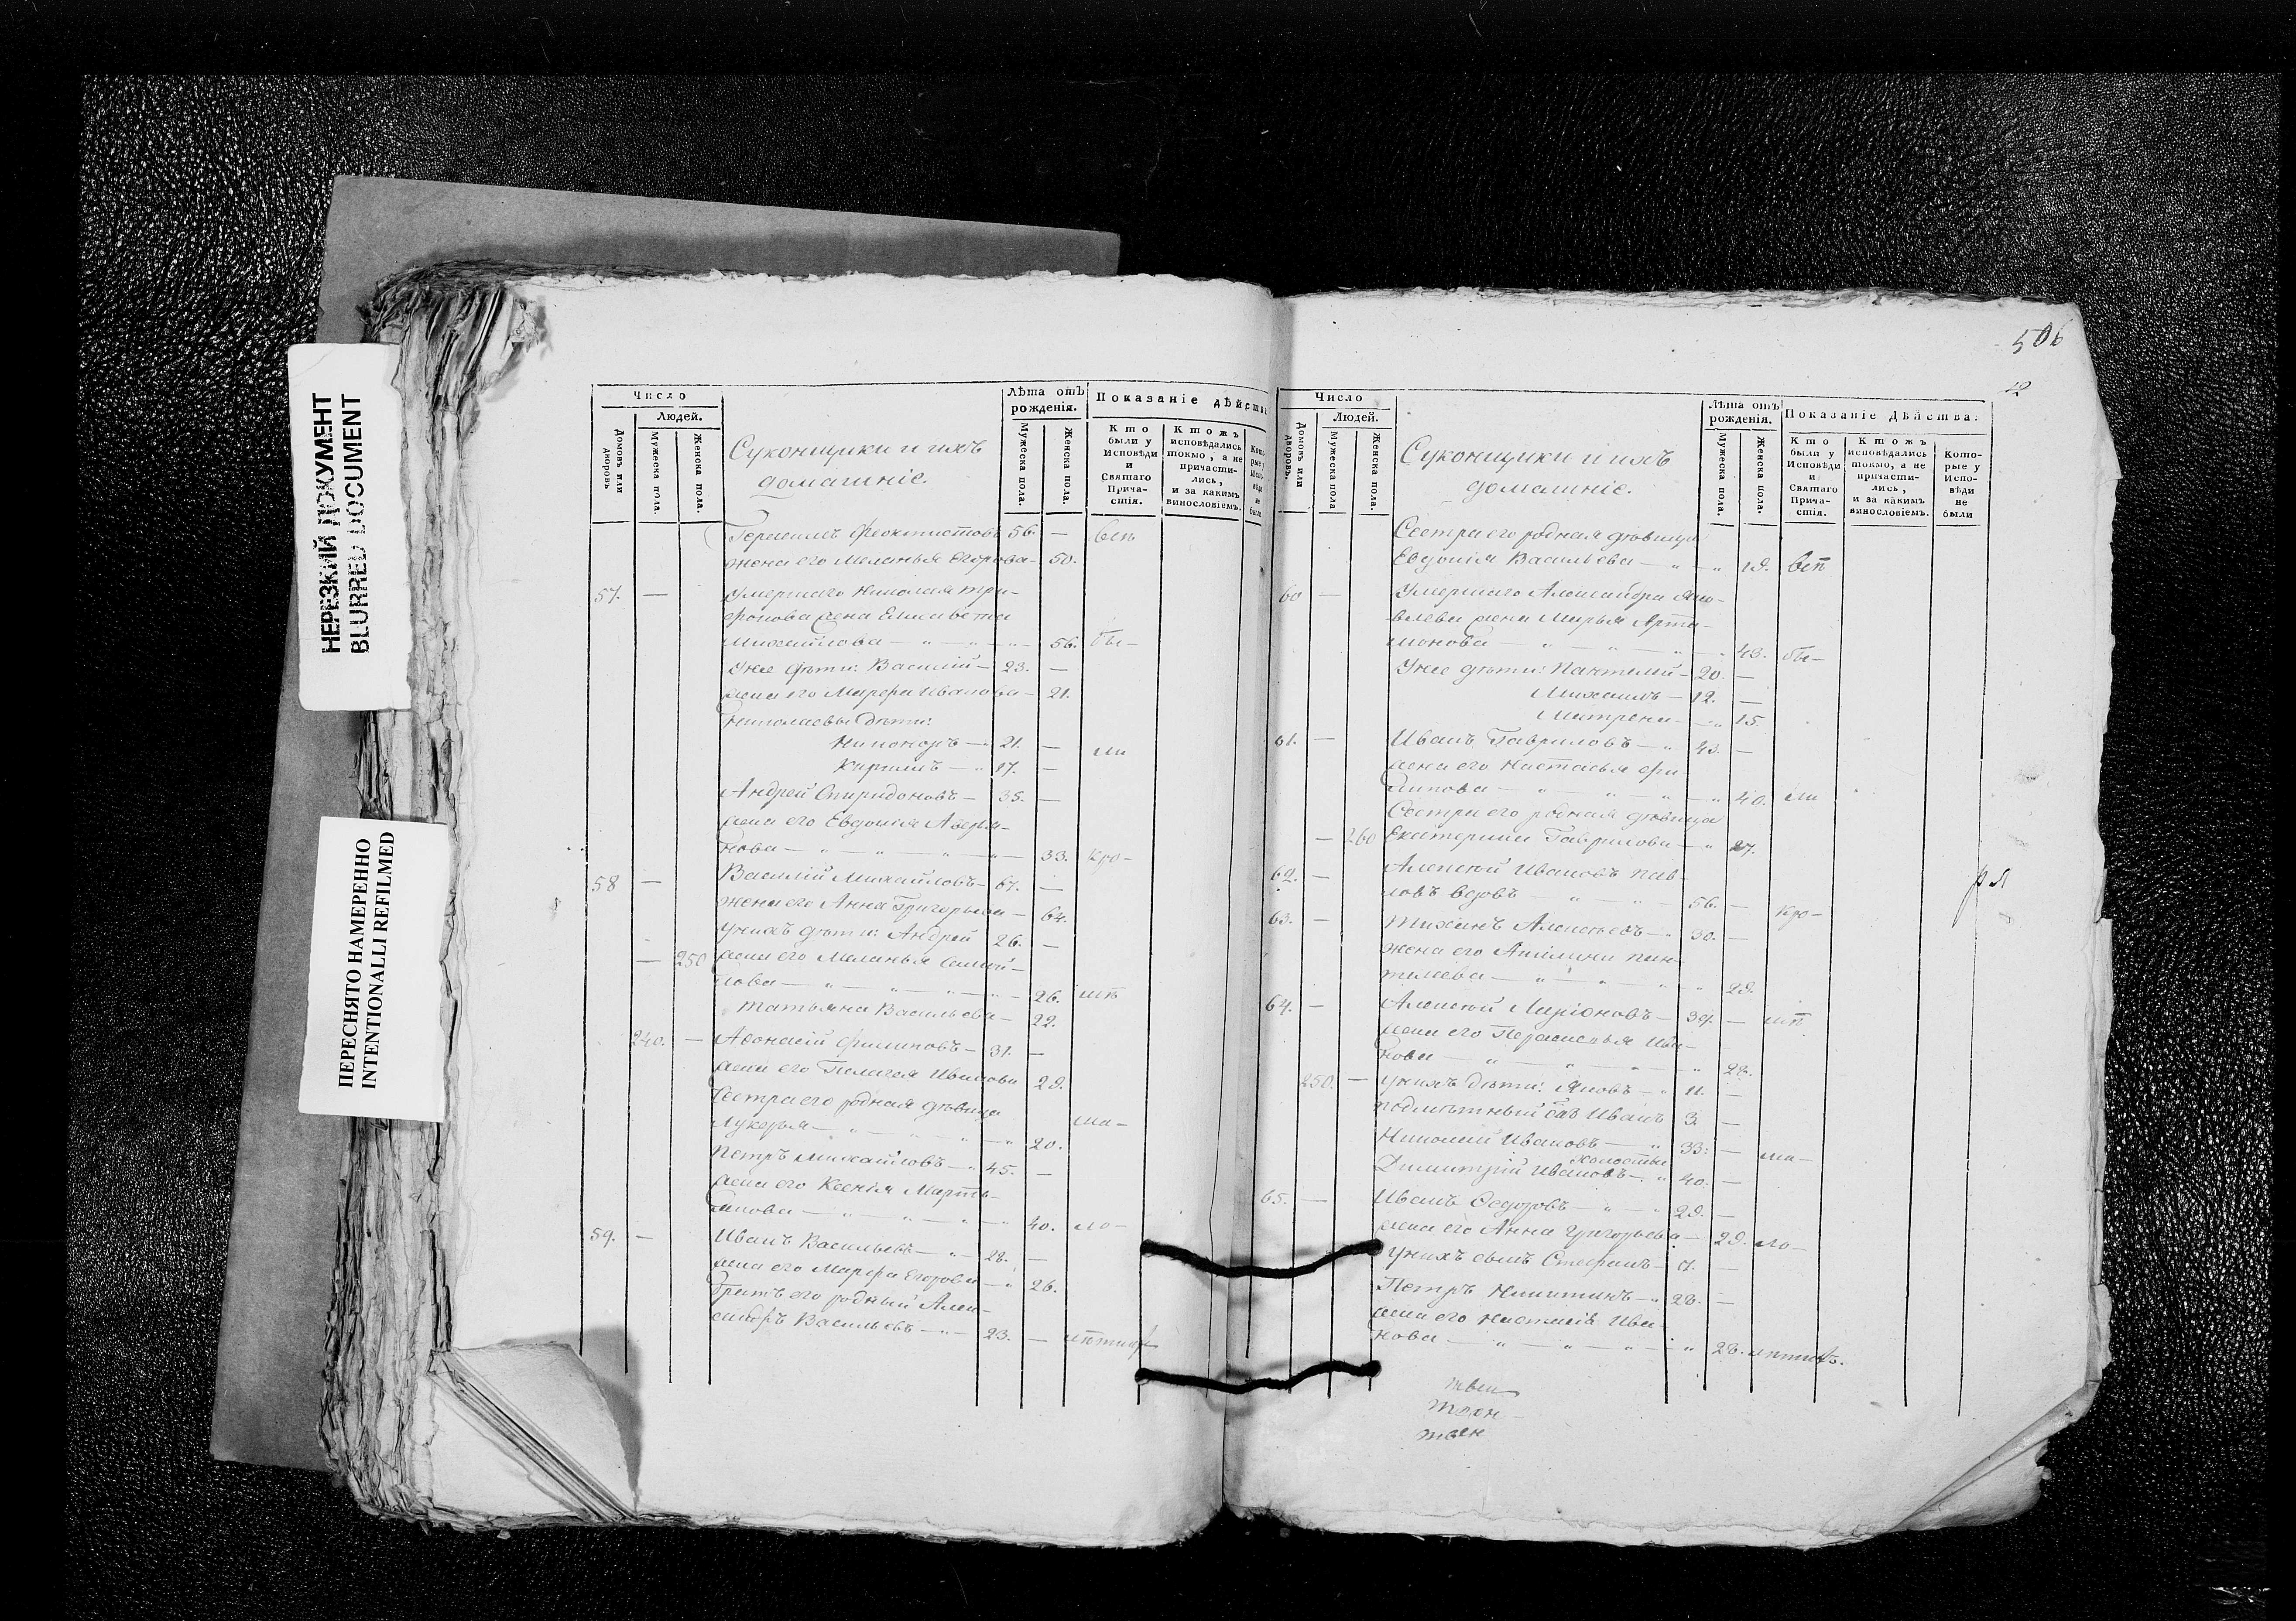 НЕРЕЗКИЙ ДОКУМЕНТ
BLURRED DOCUMENT
ПЕРЕСНЯТО НАМЕРЕННО
INTENTIONALLI REFILMED
Число
Людей.
Домовъ или дворовъ
Мужеска пола.
Женска пола.
Суконщики и ихъ
домашніе.
Лѣта отъ рожденія.
Мужеска пола.
Женска пола.
Показаніе дѣйства
Кто были у Исповѣди и Святаго Причастія.
Ктожъ исповѣдались токмо, а не причастились, и за какимъ винословіемъ.
Которые у Исповѣди не были
Герасимъ Феоктистовъ 56. —
жена его Меланья Егорова — 50.
57. — умершаго Николая Три-
фонова жена Елисавета
Михайлова — „ — „ — 56. бы —
У нее дѣти: Василій — 23. —
жена его Марфа Иванова — 21.
Николаевы дѣти:
Никоноръ — 21. —
Кирилъ — „ 17. —
Андрей Спиридоновъ — 35. —
жена его Евдокія
нова — „ — „ — „ — „ — 33. кро —
58 — Василій Михайловъ — 67. —
жена его Анна Григорьева — 64.
у нихъ дѣти: Андрей 26. —
— 250 жена его Меланья
нова — „ — „ — „ — „ — 26.
Татьяна Васильева — 22.
240. — Афонасій Филиповъ — 31. —
жена его Пелагея Иванова 29.
Сестра его родная дѣвица
Лукерья — „ — „ — „ — „ 20. ма —
Петръ Михайловъ — „ 45. —
жена его Ксенія
нова — „ — „ — „ — „ 40. ло —
59. — Иванъ Васильевъ — „ — 28. —
жена его Марфа Егорова — „ 26.
Братъ его родный Алек-
сандръ Васильевъ — „ — 23. —
506
Число
Людей.
Домовъ или дворовъ.
Мужеска пола
Женска пола.
Суконщики и ихъ
домашніе.
Лѣта отъ рожденія.
Мужеска пола.
Женска пола.
Показаніе Дѣйства:
Кто были у Исповѣди и Святаго Причастія.
Ктожъ исповѣдались токмо, а не причастились, и за какимъ винословіемъ.
Которые у Исповѣди не были
Сестра его родная дѣвица
Евдокія Васильева — „ — „ 19.
60 — Умершаго Александра Яко-
влева жена Марья Арта-
монова — „ — „ — „ — „ 43. бы —
У нее дѣти: Пантелей — 20. —
Михаилъ — 12. —
Матрена — „ 15.
61. — Иванъ Гавриловъ — „ 43. —
жена его Настасья Фи-
липова — „ — „ — „ — „ 40. ли
Сестра его родная дѣвица
— 260 Екатерина Гаврилова — „ 27.
62. — Алексей Ивановъ Пав-
ловъ вдовъ — „ — „ — 56. — кро —
63. — Тихонъ Алексеевъ — „ 30. —
жена его Акилина Пан-
телеева — „ — „ — „ — „ 29.
64. — Алексей Ларіоновъ — 39. —
жена его Парасковья Ива-
нова — „ — „ — „ — „ 28.
250. — у нихъ дѣти: Яковъ — „ 11. —
Иванъ 3 —
Николай Ивановъ — „ 33. — ма —
холостые
Димитрій Ивановъ — „ 40. —
65. — Иванъ Федоровъ — „ — „ 29. —
жена его Анна Григорьева — 29. ло —
у нихъ сынъ Стефанъ — 7. —
Петръ Никитинъ — „ 28. —
жена его Настасія Ива-
нова — „ — „ — „ — „ 28.